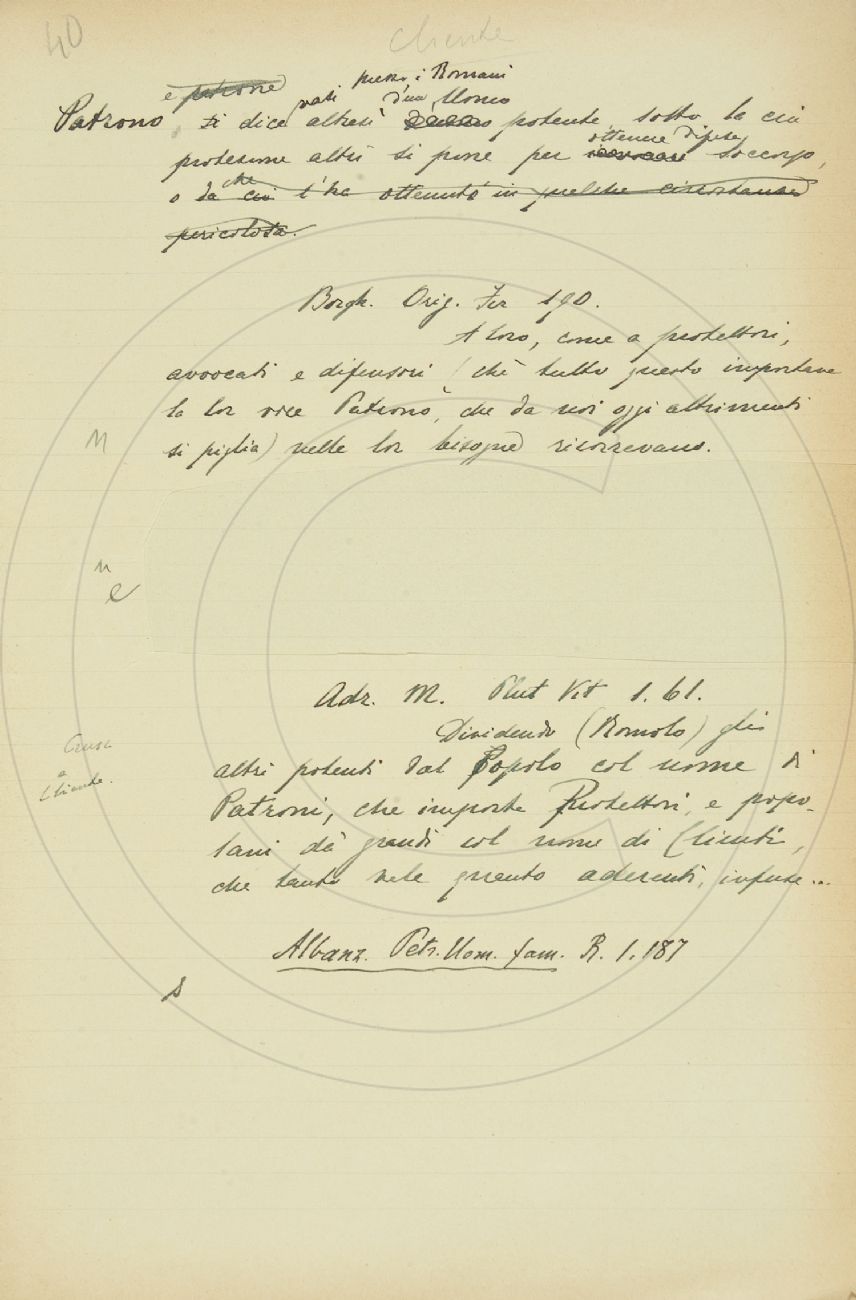 40
Cliente
e patrone
presso i Romani
d'un Uomo
Patrono, si dice altresì potente, sotto la cui
ottenere difesa,
protezione altri si pone per invocare soccorso,
che
o da cui l'ha ottenuto in qualche circostanza
pericolosa.
Borgh. Orig. Fir 190.
A loro, come a protettori,
avvocati e difensori (chè tutto questo importava
la lor voce Patrono, che da noi oggi altrimenti
si piglia) nelle lor bisogne ricorrevano.
n
n
e
Adr. M. Plut Vit 1.61.
Dividendo (Romolo) gli
altri potenti dal Popolo col nome di
Patroni, che importa Protettori, e popo-
lani dà grandi col nome di Clienti,
che tanto vale quanto aderenti, infuse...
Crusc
a
Cliente.
Albanz. Petr. Uom. fam. R. 1.187
s